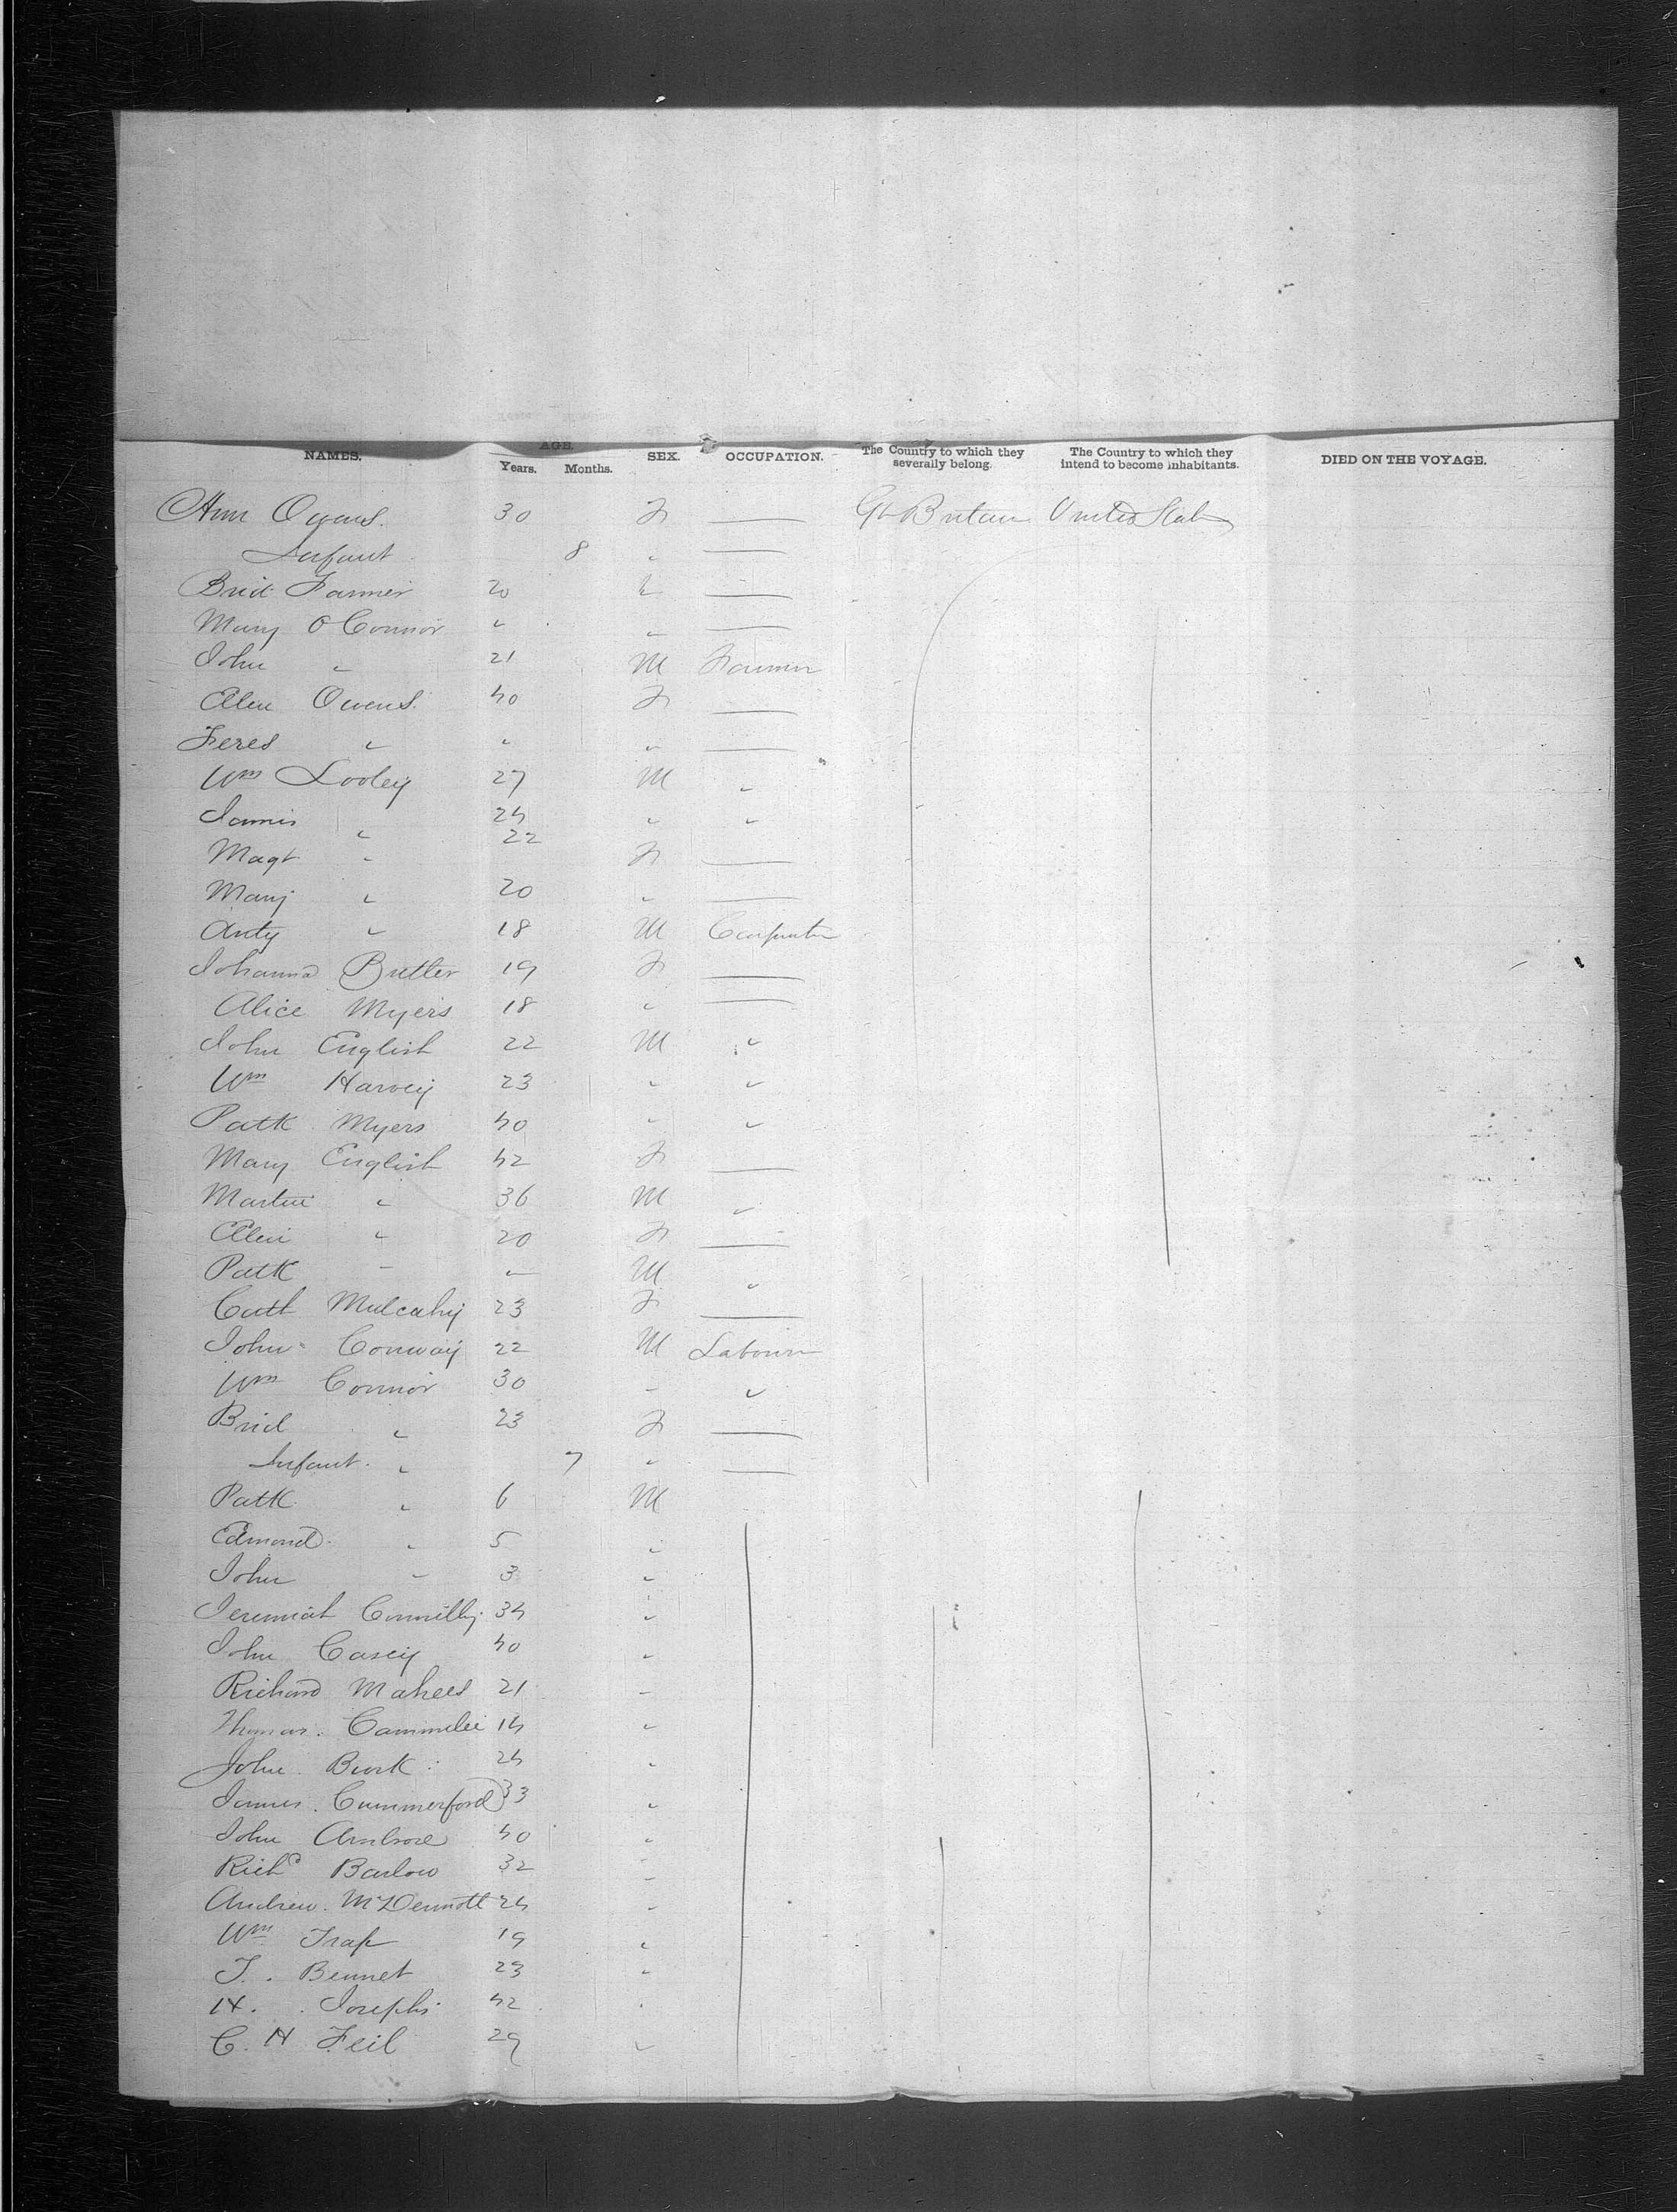 NAMES. AGE. Years. Months. SEX. OCCUPATION. The Country to which they severally belong. The Country to which they intend to become inhabitants. DIED ON THE VOYAGE.
Ann Owens. 30 F — Gt Britain United States
Infant 8 " —
Brid Farmer 20 " —
Mary O Connor " " —
John " 21 M Farmer
Ellen Owens 40 F —
" " " —
Wm Looley 27 M "
James " 24 " "
Magt " 22 F —
Mary " 20 " —
Anty " 18 M Carpenter
Johanna Butler 19 F —
Alice Myers 18 " —
John English 22 M "
Wm Harvey 23 " "
Patk Myers 40 " "
Mary English 42 F —
Martin " 36 M "
Ellen " 20 F —
Patk " " M "
Cath Mulcahy 23 F —
John Conway 22 M Labourer
Wm Connor 30 " "
Brid " 23 F —
Infant. " 7 " —
Patk " 6 M
Edmond " 5 "
John " 3 "
Jeremiah Connilly 34 "
John Casey 40 "
Richard Mahees 21 "
Thomas. 14 "
John Burk 24 "
James. Cummerford 33 "
John Ambrose 40 "
Richd Barlow 32 "
Andrew. McDermott 24 "
Wm Trap 19 "
J. Bennet 23 "
H. Josephs 42 "
C. H Feil 29 "